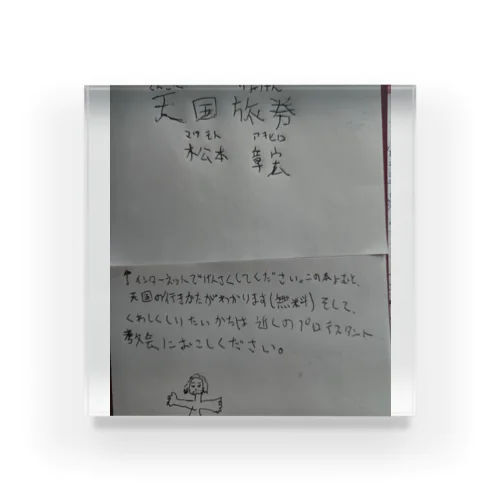 天国旅券
まつもと アキヒロ
松本 章宏
↑インターネットでけんさくしてください。この本よむと、
天国の行きかたがわかります(無料) そして、
くわしくしりたいかたは 近くのプロテスタント
教会におこしください。